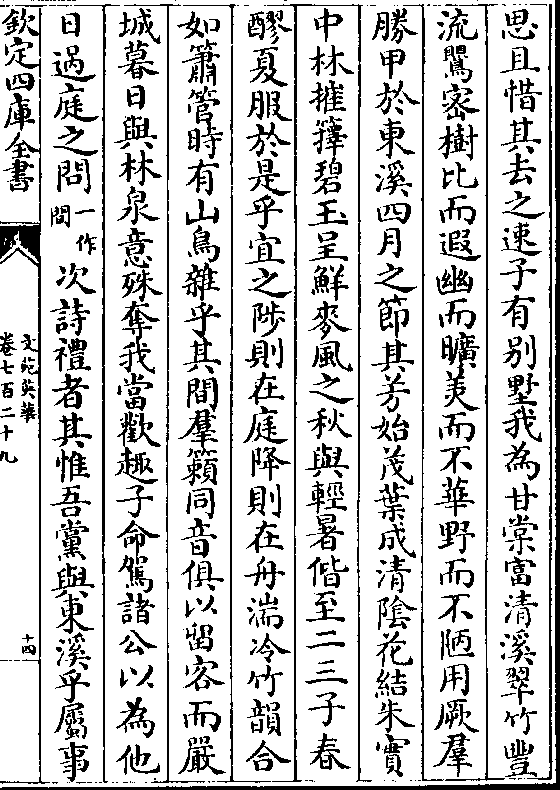 思且惜其去之速子有别墅我為甘棠富清溪翠竹豐
流鶯密樹比而遐幽而曠羙而不華野而不陋用厥羣
勝甲於東溪四月之節其芳始茂葉成清陰花結朱實
中林摧籜碧玉呈鮮麥風之秋與輕暑偕至二三子春
醪夏服於是乎宜之陟則在庭降則在舟湍冷竹韻合
如簫管時有山鳥雜乎其間羣籟同音俱以留客而嚴
城暮日與林泉意殊奪我當歡趣子命駕諸公以為他
日過庭之問一作間次詩禮者其惟吾黨與東溪乎屬事
欽定四庫全書
文苑英華
卷七百二十九
十四